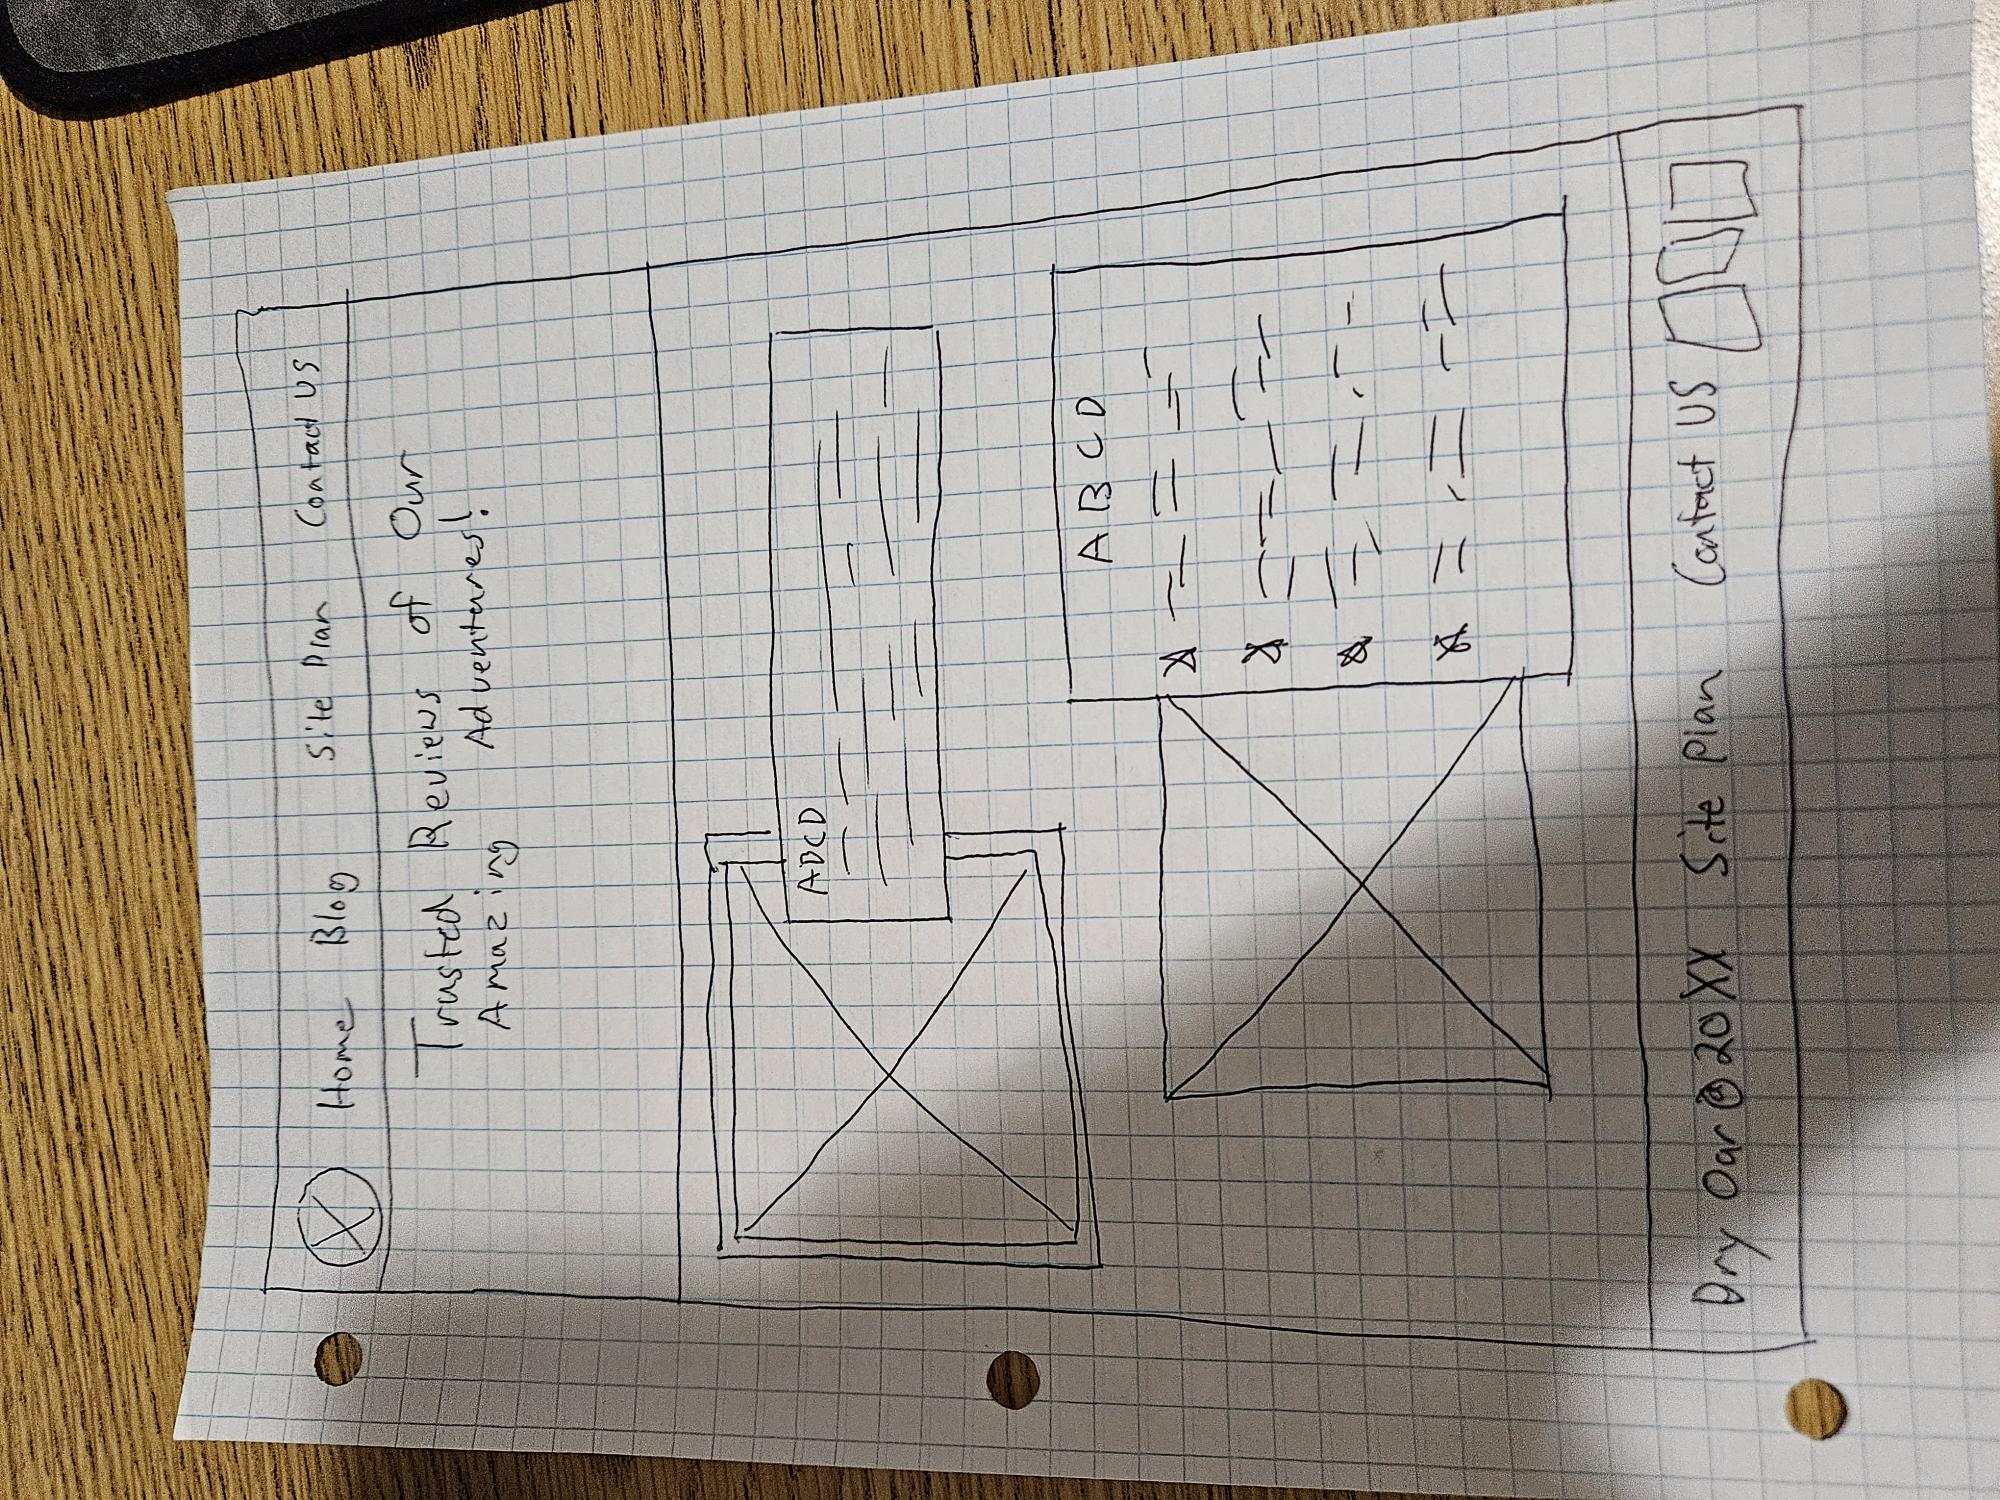 Home Blog Site Plan Contact US
Trusted Reviews of Our
Amazing Adventures!
ABCD
A B C D
Dry Oar @ 20XX Site Plan Contact US